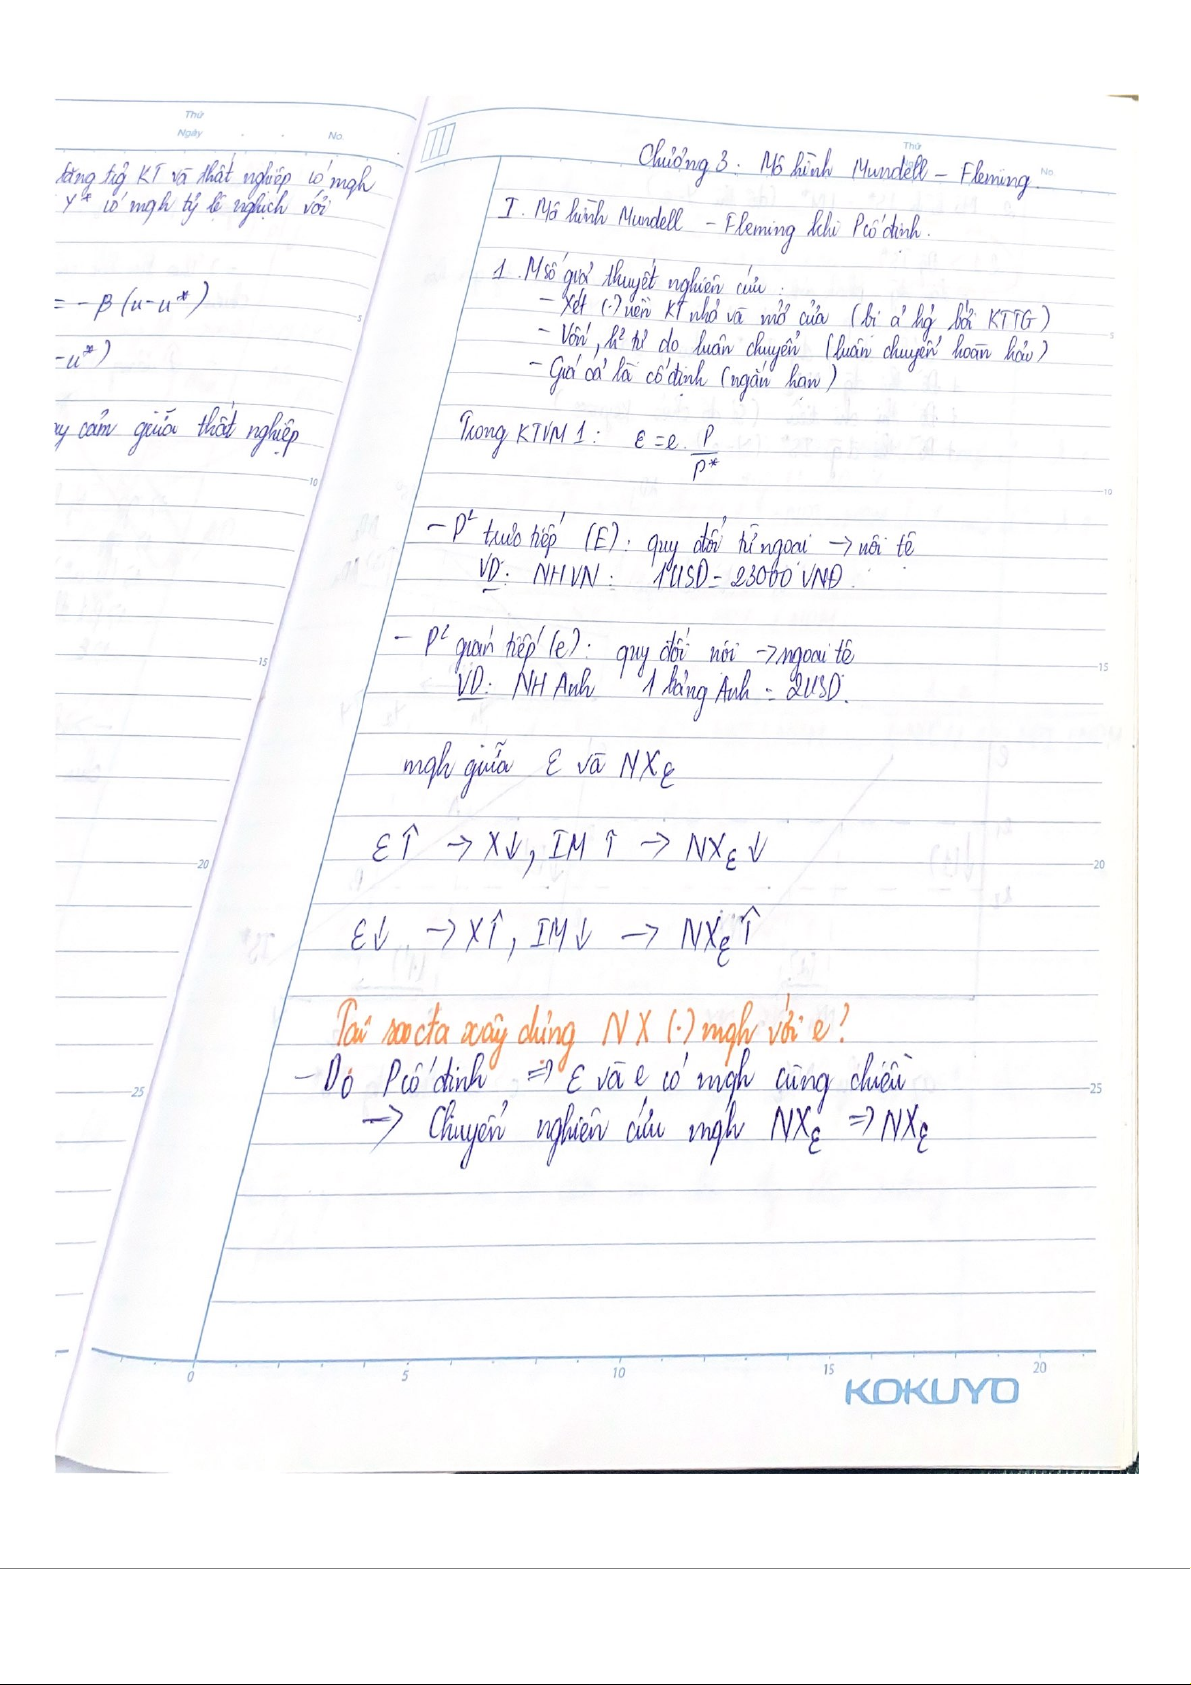 Thứ
Ngày . . No.
tăng tg KT và thất nghiệp có mqh
Y* có mqh tỷ lệ nghịch với
= - β (u - u*)
- u*)
cảm giữa thất nghiệp
Thứ
No.
Chương 3: Mô hình Mundell - Fleming.
I. Mô hình Mundell - Fleming khi P cố định.
1. M số giả thuyết nghiên cứu:
- Xét (·) nền KT nhỏ và mở cửa (bị ả hg bởi KTTG)
- Vốn, h² tự do luân chuyển (luân chuyển hoàn hảo)
- Giá cả là cố định (ngắn hạn)
Trong KTVM 1: ε = e. P/P*
- P² trực tiếp (E): quy đổi từ ngoại → nội tệ
VD: NHVN: 1 USD = 23000 VNĐ.
- P² gián tiếp (e): quy đổi nội → ngoại tệ
VD: NH Anh 1 bảng Anh = 2USD.
mqh giữa ε và NXε
ε↑ → X↓, IM↑ → NXε↓
ε↓ → X↑, IM↓ → NXε↑
Tại sao cta xây dựng NX (·) mqh với e?
- Do P cố định => ε và e có mqh cùng chiều
→ Chuyển nghiên cứu mqh NXε => NXε
5
10
15
20
25
5
10
15
20
25
0 5 10 15 20
KOKUYO